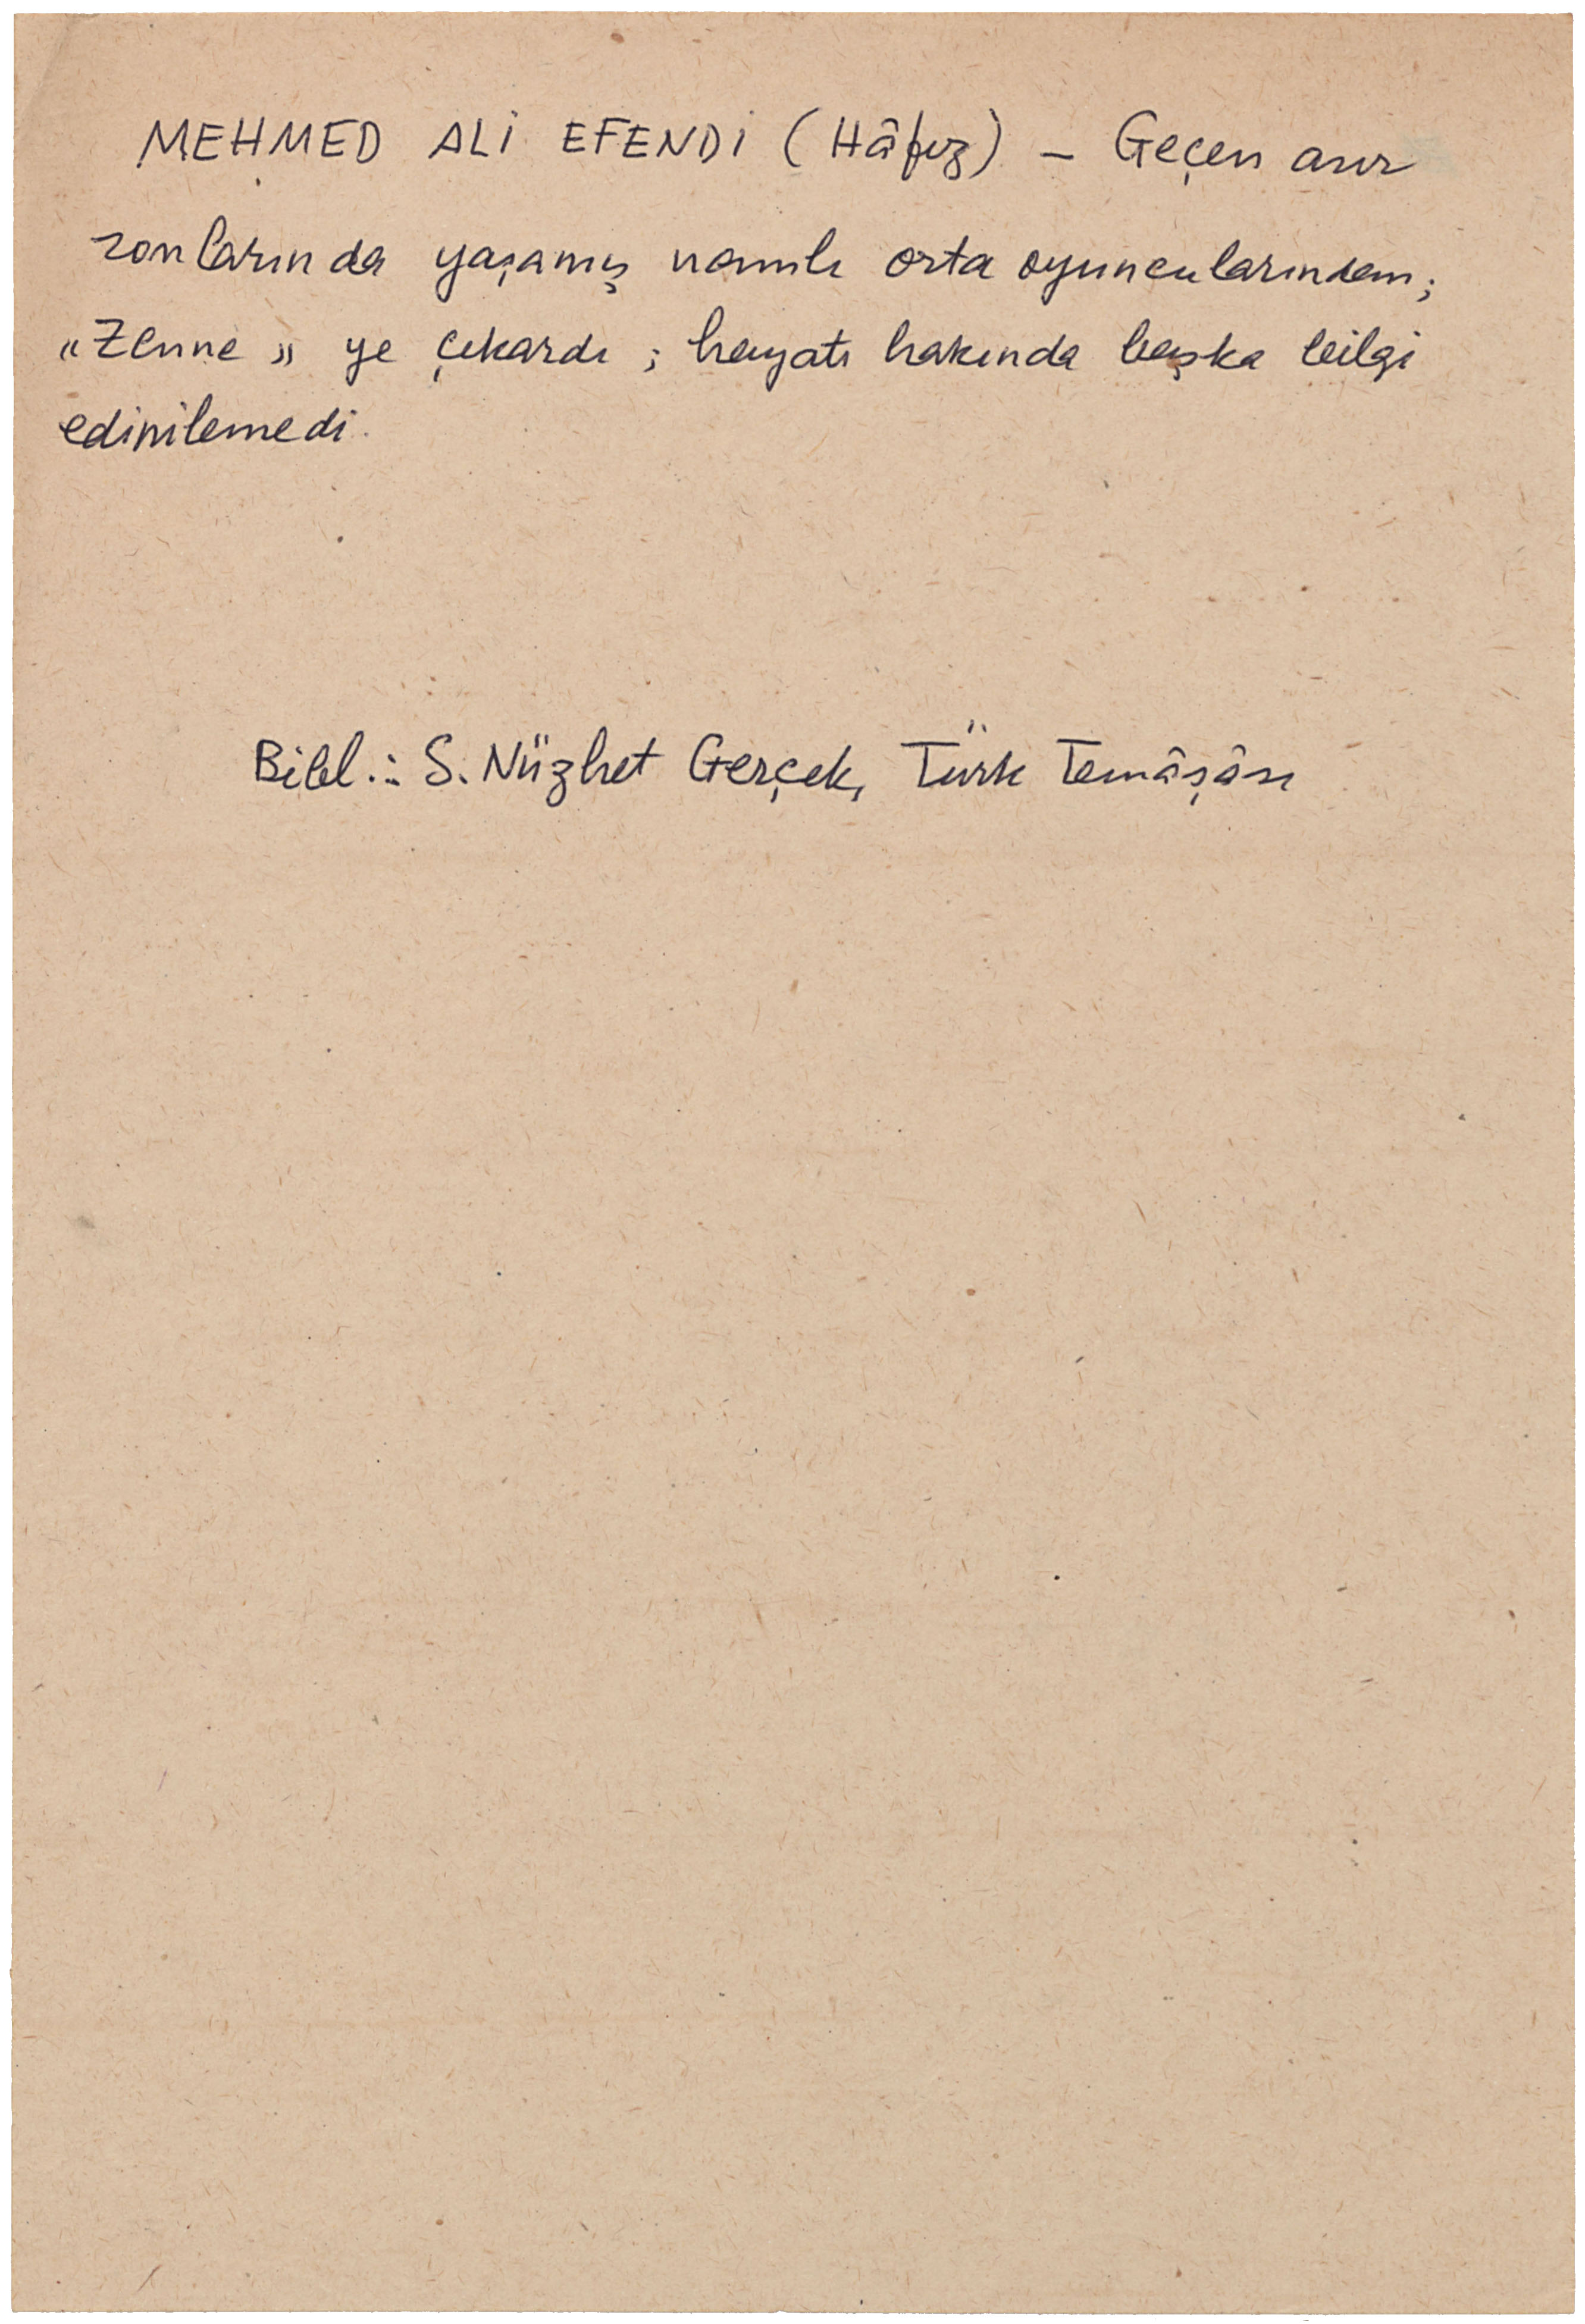 MEHMED ALİ EFENDİ (Hâfız) – Geçen asır
sonlarında yaşamış namlı orta oyuncularından;
"Zenne" ye çıkardı; hayatı hakında başka bilgi
edinilemedi.
Bibl.: S. Nüzhet Gerçek, Türk Temâşâsı